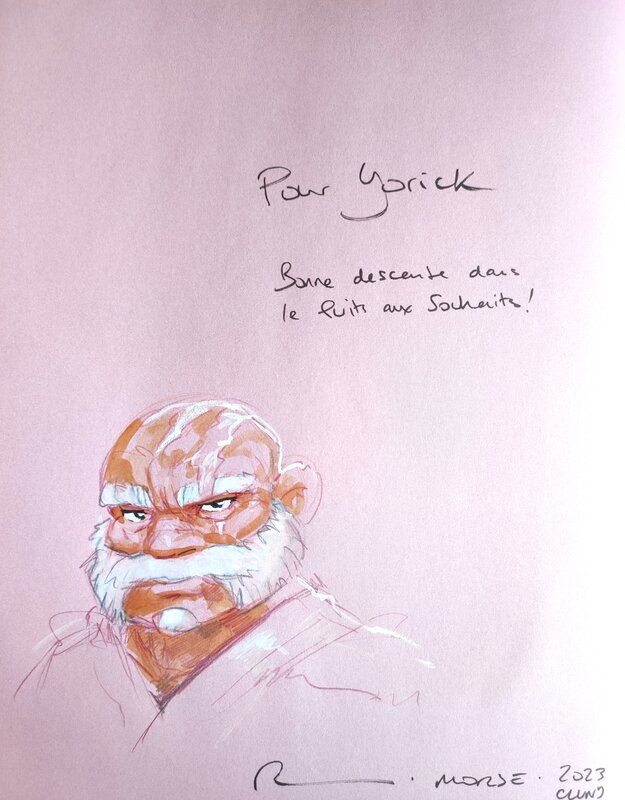 Pour Yorick
Bonne descente dans
le Puits aux Souhaits!
. MORSE . 2023